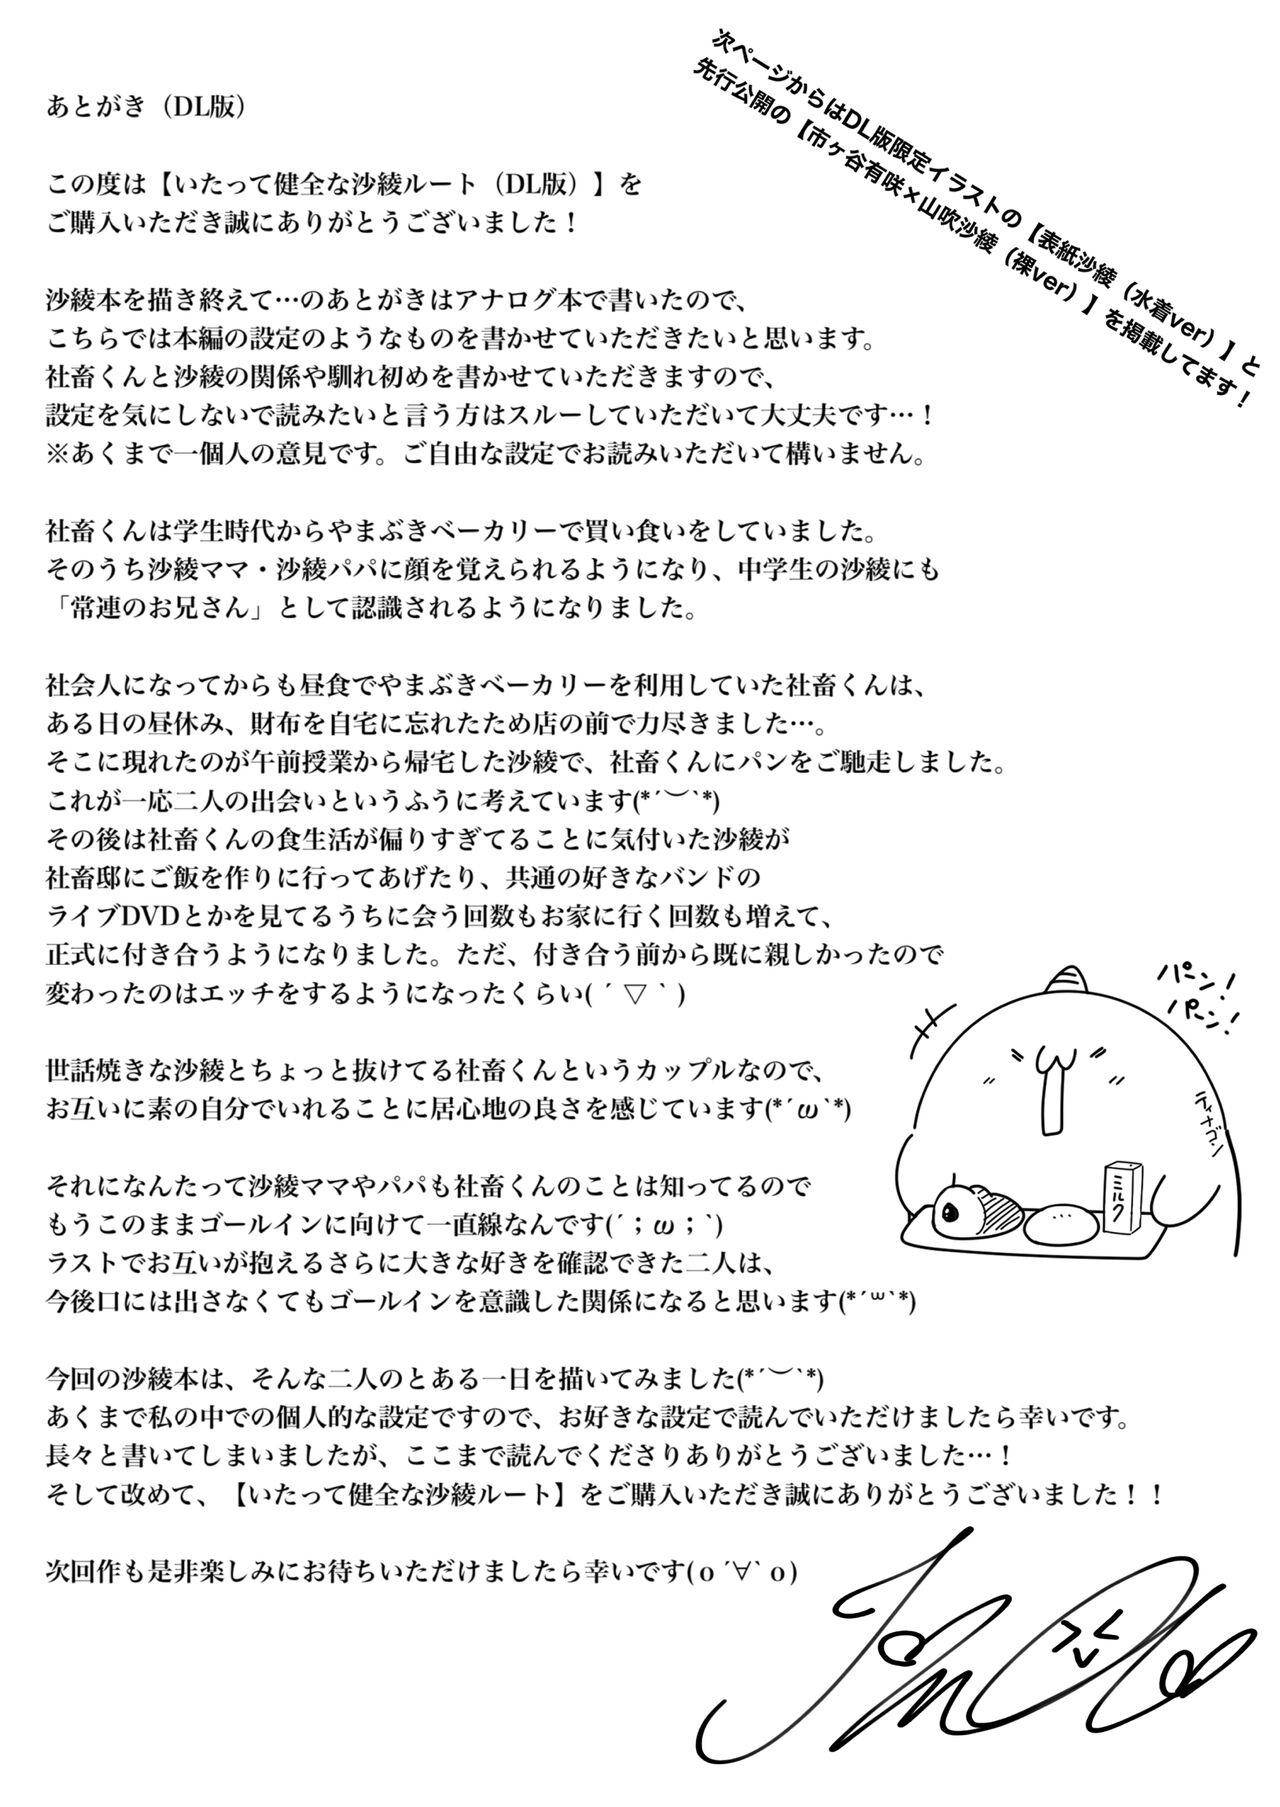 次ページからはDL版限定イラストの【表紙沙綾（水着ver）】と
先行公開の【市ヶ谷有咲×山吹沙綾（裸ver）】を掲載してます！
あとがき（DL版）
この度は【いたって健全な沙綾ルート（DL版）】を
ご購入いただき誠にありがとうございました！
沙綾本を描き終えて…のあとがきはアナログ本で書いたので、
こちらでは本編の設定のようなものを書かせていただきたいと思います。
社畜くんと沙綾の関係や馴れ初めを書かせていただきますので、
設定を気にしないで読みたいと言う方はスルーしていただいて大丈夫です…！
※あくまで一個人の意見です。ご自由な設定でお読みいただいて構いません。
社畜くんは学生時代からやまぶきベーカリーで買い食いをしていました。
そのうち沙綾ママ・沙綾パパに顔を覚えられるようになり、中学生の沙綾にも
「常連のお兄さん」として認識されるようになりました。
社会人になってからも昼食でやまぶきベーカリーを利用していた社畜くんは、
ある日の昼休み、財布を自宅に忘れたため店の前で力尽きました…。
そこに現れたのが午前授業から帰宅した沙綾で、社畜くんにパンをご馳走しました。
これが一応二人の出会いというふうに考えています(*´︶`*)
その後は社畜くんの食生活が偏りすぎてることに気付いた沙綾が
社畜邸にご飯を作りに行ってあげたり、共通の好きなバンドの
ライブDVDとかを見てるうちに会う回数もお家に行く回数も増えて、
正式に付き合うようになりました。ただ、付き合う前から既に親しかったので
変わったのはエッチをするようになったくらい( ´ ▽ ` )
世話焼きな沙綾とちょっと抜けてる社畜くんというカップルなので、
お互いに素の自分でいれることに居心地の良さを感じています(*´ω`*)
それになんたって沙綾ママやパパも社畜くんのことは知ってるので
もうこのままゴールインに向けて一直線なんです(´；ω；`)
ラストでお互いが抱えるさらに大きな好きを確認できた二人は、
今後口には出さなくてもゴールインを意識した関係になると思います(*´꒳`*)
今回の沙綾本は、そんな二人のとある一日を描いてみました(*´︶`*)
あくまで私の中での個人的な設定ですので、お好きな設定で読んでいただけましたら幸いです。
長々と書いてしまいましたが、ここまで読んでくださりありがとうございました…！
そして改めて、【いたって健全な沙綾ルート】をご購入いただき誠にありがとうございました！！
次回作も是非楽しみにお待ちいただけましたら幸いです( o ´∀` o )
パーン！
パーン！
ティナゴン
ミルク